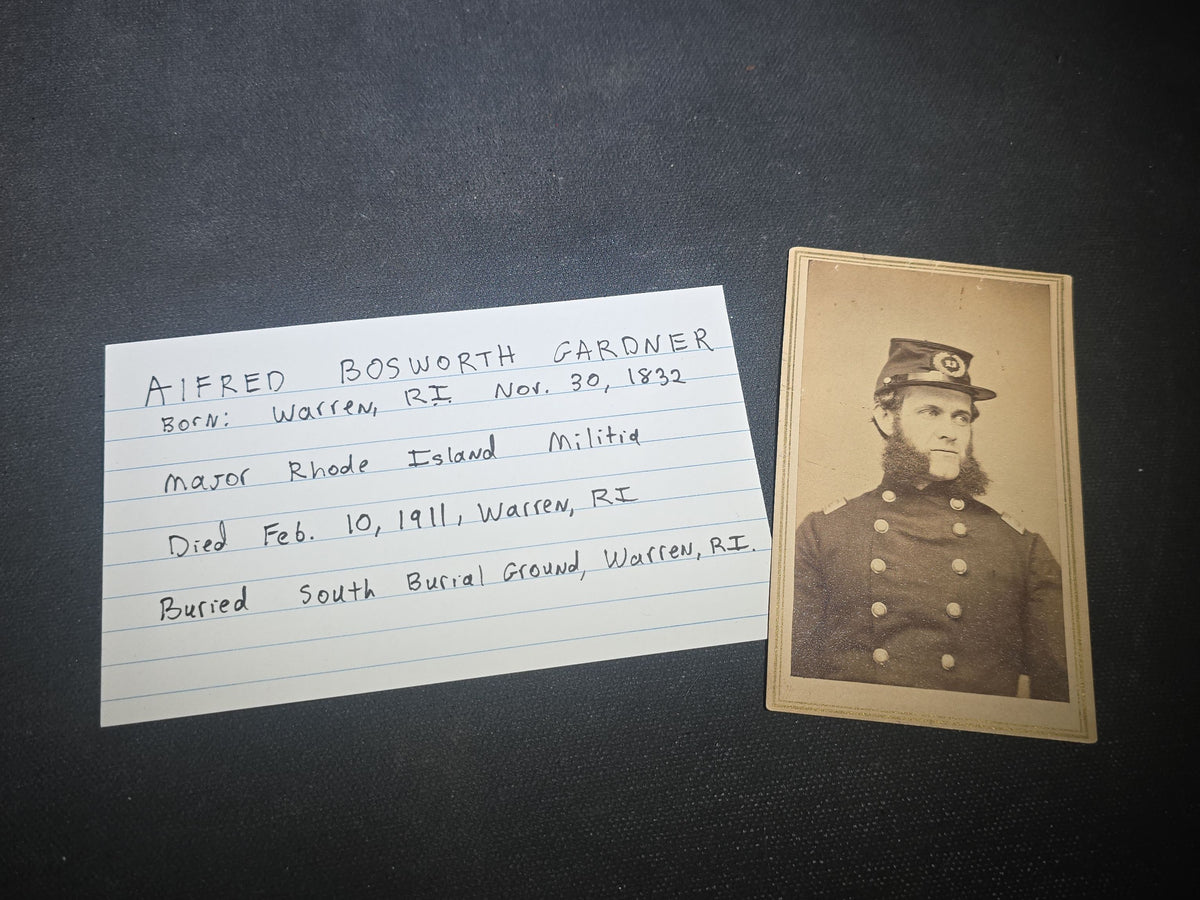 AlFRED BOSWORTH GARDNER
Born: Warren, RI. Nov. 30, 1832
Major Rhode Island Militia
Died Feb. 10, 1911, Warren, RI
Buried South Burial Ground, Warren, RI.